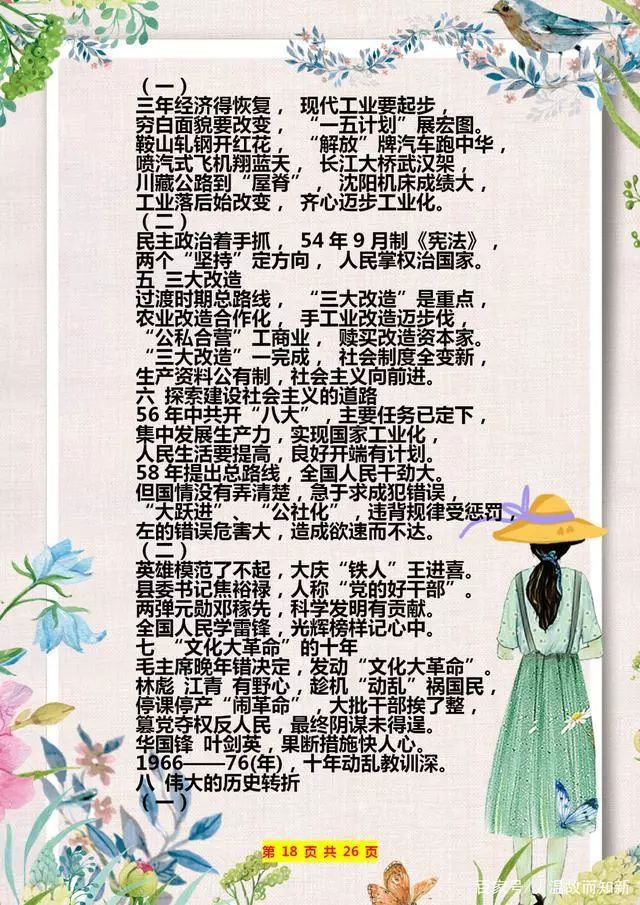 （一）
三年经济得恢复， 现代工业要起步，
穷白面貌要改变， “一五计划”展宏图。
鞍山轧钢开红花， “解放”牌汽车跑中华，
喷汽式飞机翔蓝天， 长江大桥武汉架，
川藏公路到“屋脊”， 沈阳机床成绩大，
工业落后始改变， 齐心迈步工业化。
（二）
民主政治着手抓， 54年9月制《宪法》，
两个“坚持”定方向， 人民掌权治国家。
五 三大改造
过渡时期总路线， “三大改造”是重点，
农业改造合作化， 手工业改造迈步伐，
“公私合营”工商业， 赎买改造资本家。
“三大改造”一完成， 社会制度全变新，
生产资料公有制，社会主义向前进。
六 探索建设社会主义的道路
56年中共开“八大”，主要任务已定下，
集中发展生产力，实现国家工业化，
人民生活要提高，良好开端有计划。
58年提出总路线，全国人民干劲大。
但国情没有弄清楚，急于求成犯错误，
“大跃进”、“公社化”，违背规律受惩罚，
左的错误危害大，造成欲速而不达。
（二）
英雄模范了不起，大庆“铁人”王进喜。
县委书记焦裕禄，人称“党的好干部”。
两弹元勋邓稼先，科学发明有贡献。
全国人民学雷锋，光辉榜样记心中。
七 “文化大革命”的十年
毛主席晚年错决定，发动“文化大革命”。
林彪 江青 有野心，趁机“动乱”祸国民，
停课停产“闹革命”，大批干部挨了整，
篡党夺权反人民，最终阴谋未得逞。
华国锋 叶剑英，果断措施快人心。
1966——76(年)，十年动乱教训深。
八 伟大的历史转折
（一）
第 18 页 共 26 页
百家号/温故而知新